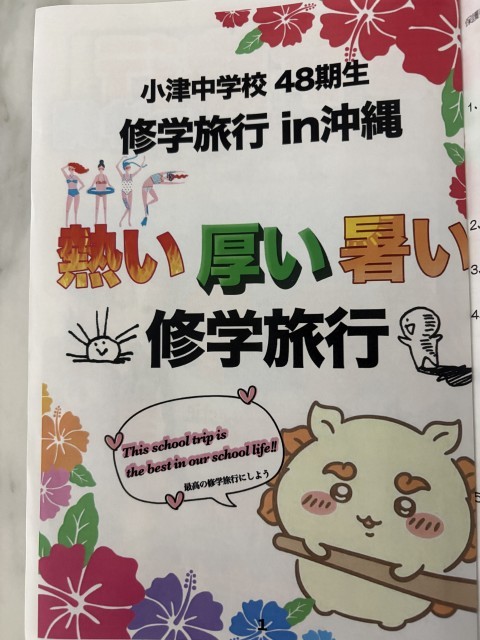 小津中学校 48期生
修学旅行 in沖縄
熱い 厚い 暑い
修学旅行
This school trip is
the best in our school life!!
最高の修学旅行にしよう
1
1、
2、
3、
4
5